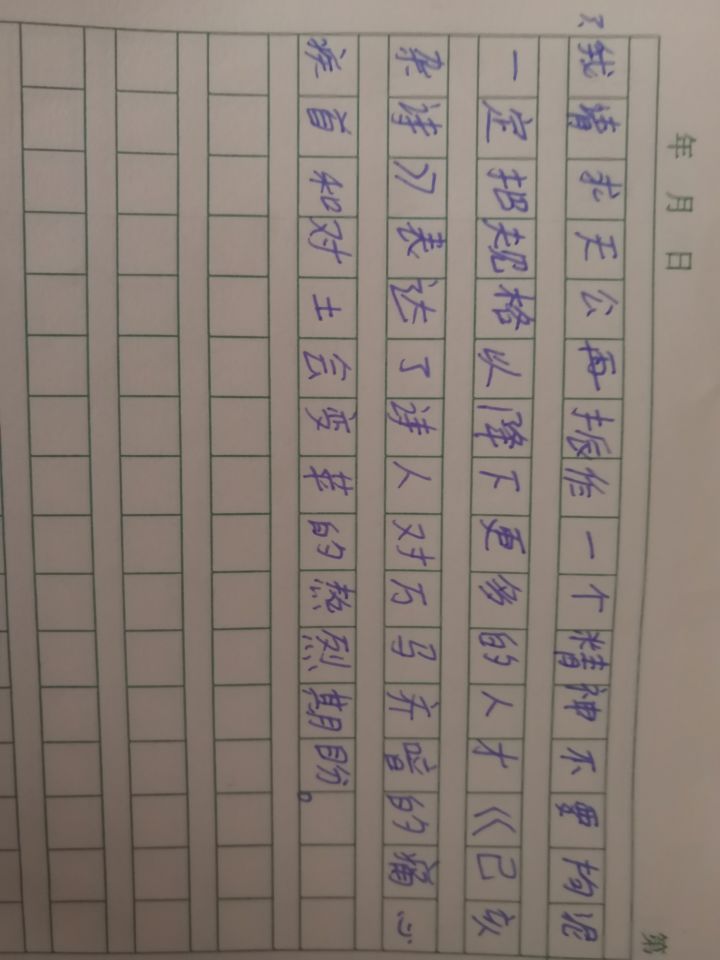 年 月 日
第
我请求天公再振作一个精神不要拘泥
一定把规格以降下更多的人才《己亥
杂诗》表达了诗人对万马齐喑的痛心
疾首和对土会变革的热烈期盼。